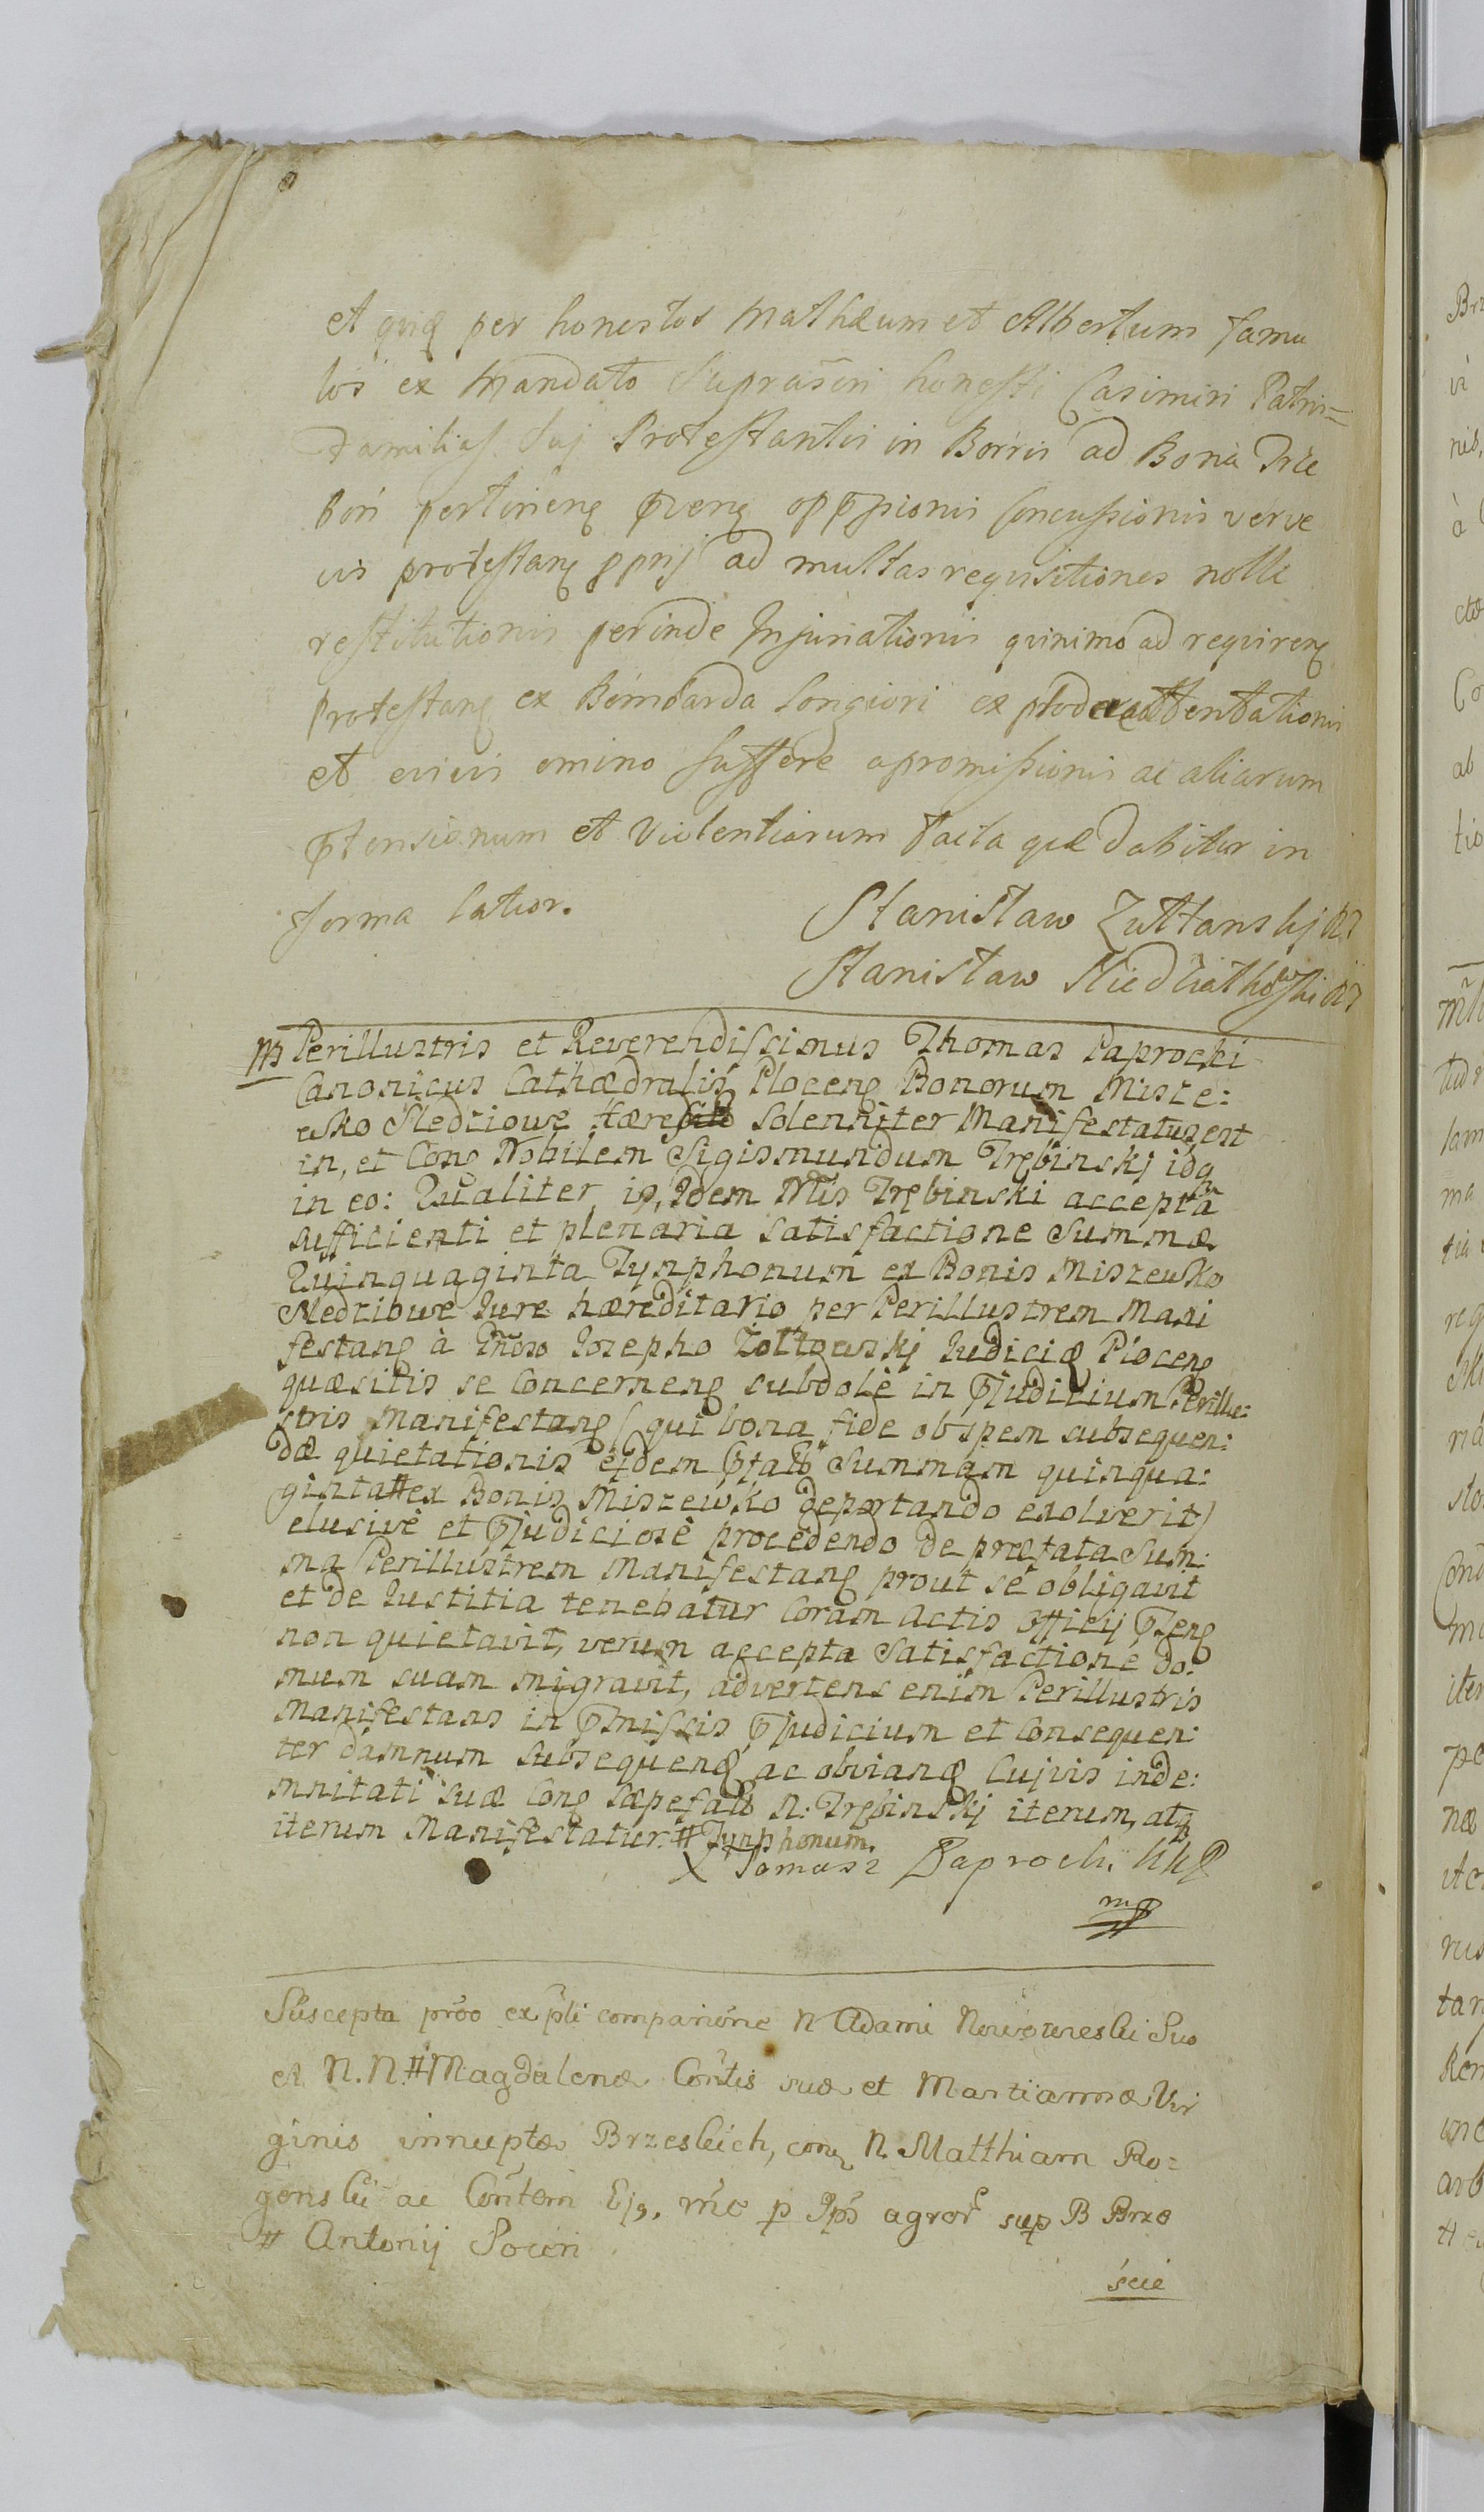 et quæ per honestos Mathæum et Albertum famu
los ex Mandato Suprascri honesti Casimiri Patris=
familias Suj Protestantis in Borris ad Bona Trze
bón pertineng pveng oppssionis Concussionis verve
cis protestang ppnj ad multas requisitiones nolle
restitutionis perinde Injuriationis quinimo ad requireng
Protestang ex Bombarda Longiori ex plode attentationis
et omino suffere apromissionis ac aliarum
ptensionum et Violentiarum facta quæ dabitur in
forma latior.
Stanisław Zułtanskj
Stanisław
Mf Perillustris et Reverendissimus Thomas Paprocki
Canonicus Cathædralis Ploceng Bonorum Misze:
wko Nedziowe hæres Solenniter Manifestatus est
in, et Cong Nobilem Sigismundum Trębinskj idq
in eo: Qualiter is, Idem Nlis Trębinski accepta
sufficienti et plenaria satisfactione Summæ
Quinquaginta Tynphonum ex Bonis Miszewko
Nedziowe Iure hæreditario per Perillustrem Mani
festang à Gñoso Iosepho Zołtowskj Iudiciæ Ploceng
quæsitis se Concerneng subdolè in pjudicium Perillu:
stris Manifestang (qui bona fide ob spem subsequen:
dæ quietationis eidem pfato Summam quinqua:
ginta # ex Bonis Miszewko deportando exolverit)
elusivè et pjudiciosè procedendo de præfata Sum:
ma Perillustrem Manifestang prout se obligavit
et de Iustitia tenebatur Coram Actis Officij pseng
non quietavit, verum accepta Satisfactione do:
mum suam migravit, advertens enim Perillustris
Manifestans in pmissis pjudicium et Consequen:
ter damnum subsequeng ac obviang Cujvis inde:
mnitati suæ Cong sæpefato N: Trębinskj iterum, atq
iterum Manifestatur. # Tynphonum.
X Tomasz Paprocki KKP
mp
Suscepta prõo ex pli comparione N Adami Suo
et N. N. # Magdalenæ Contis suæ et Martiannæ Vir
ginis innuptæ Brzeskich, cong N. Matthiam Ro=
genski ac Contem Ejg, rñe p Ips agror sup B Brze
# Antonij Socei
scie